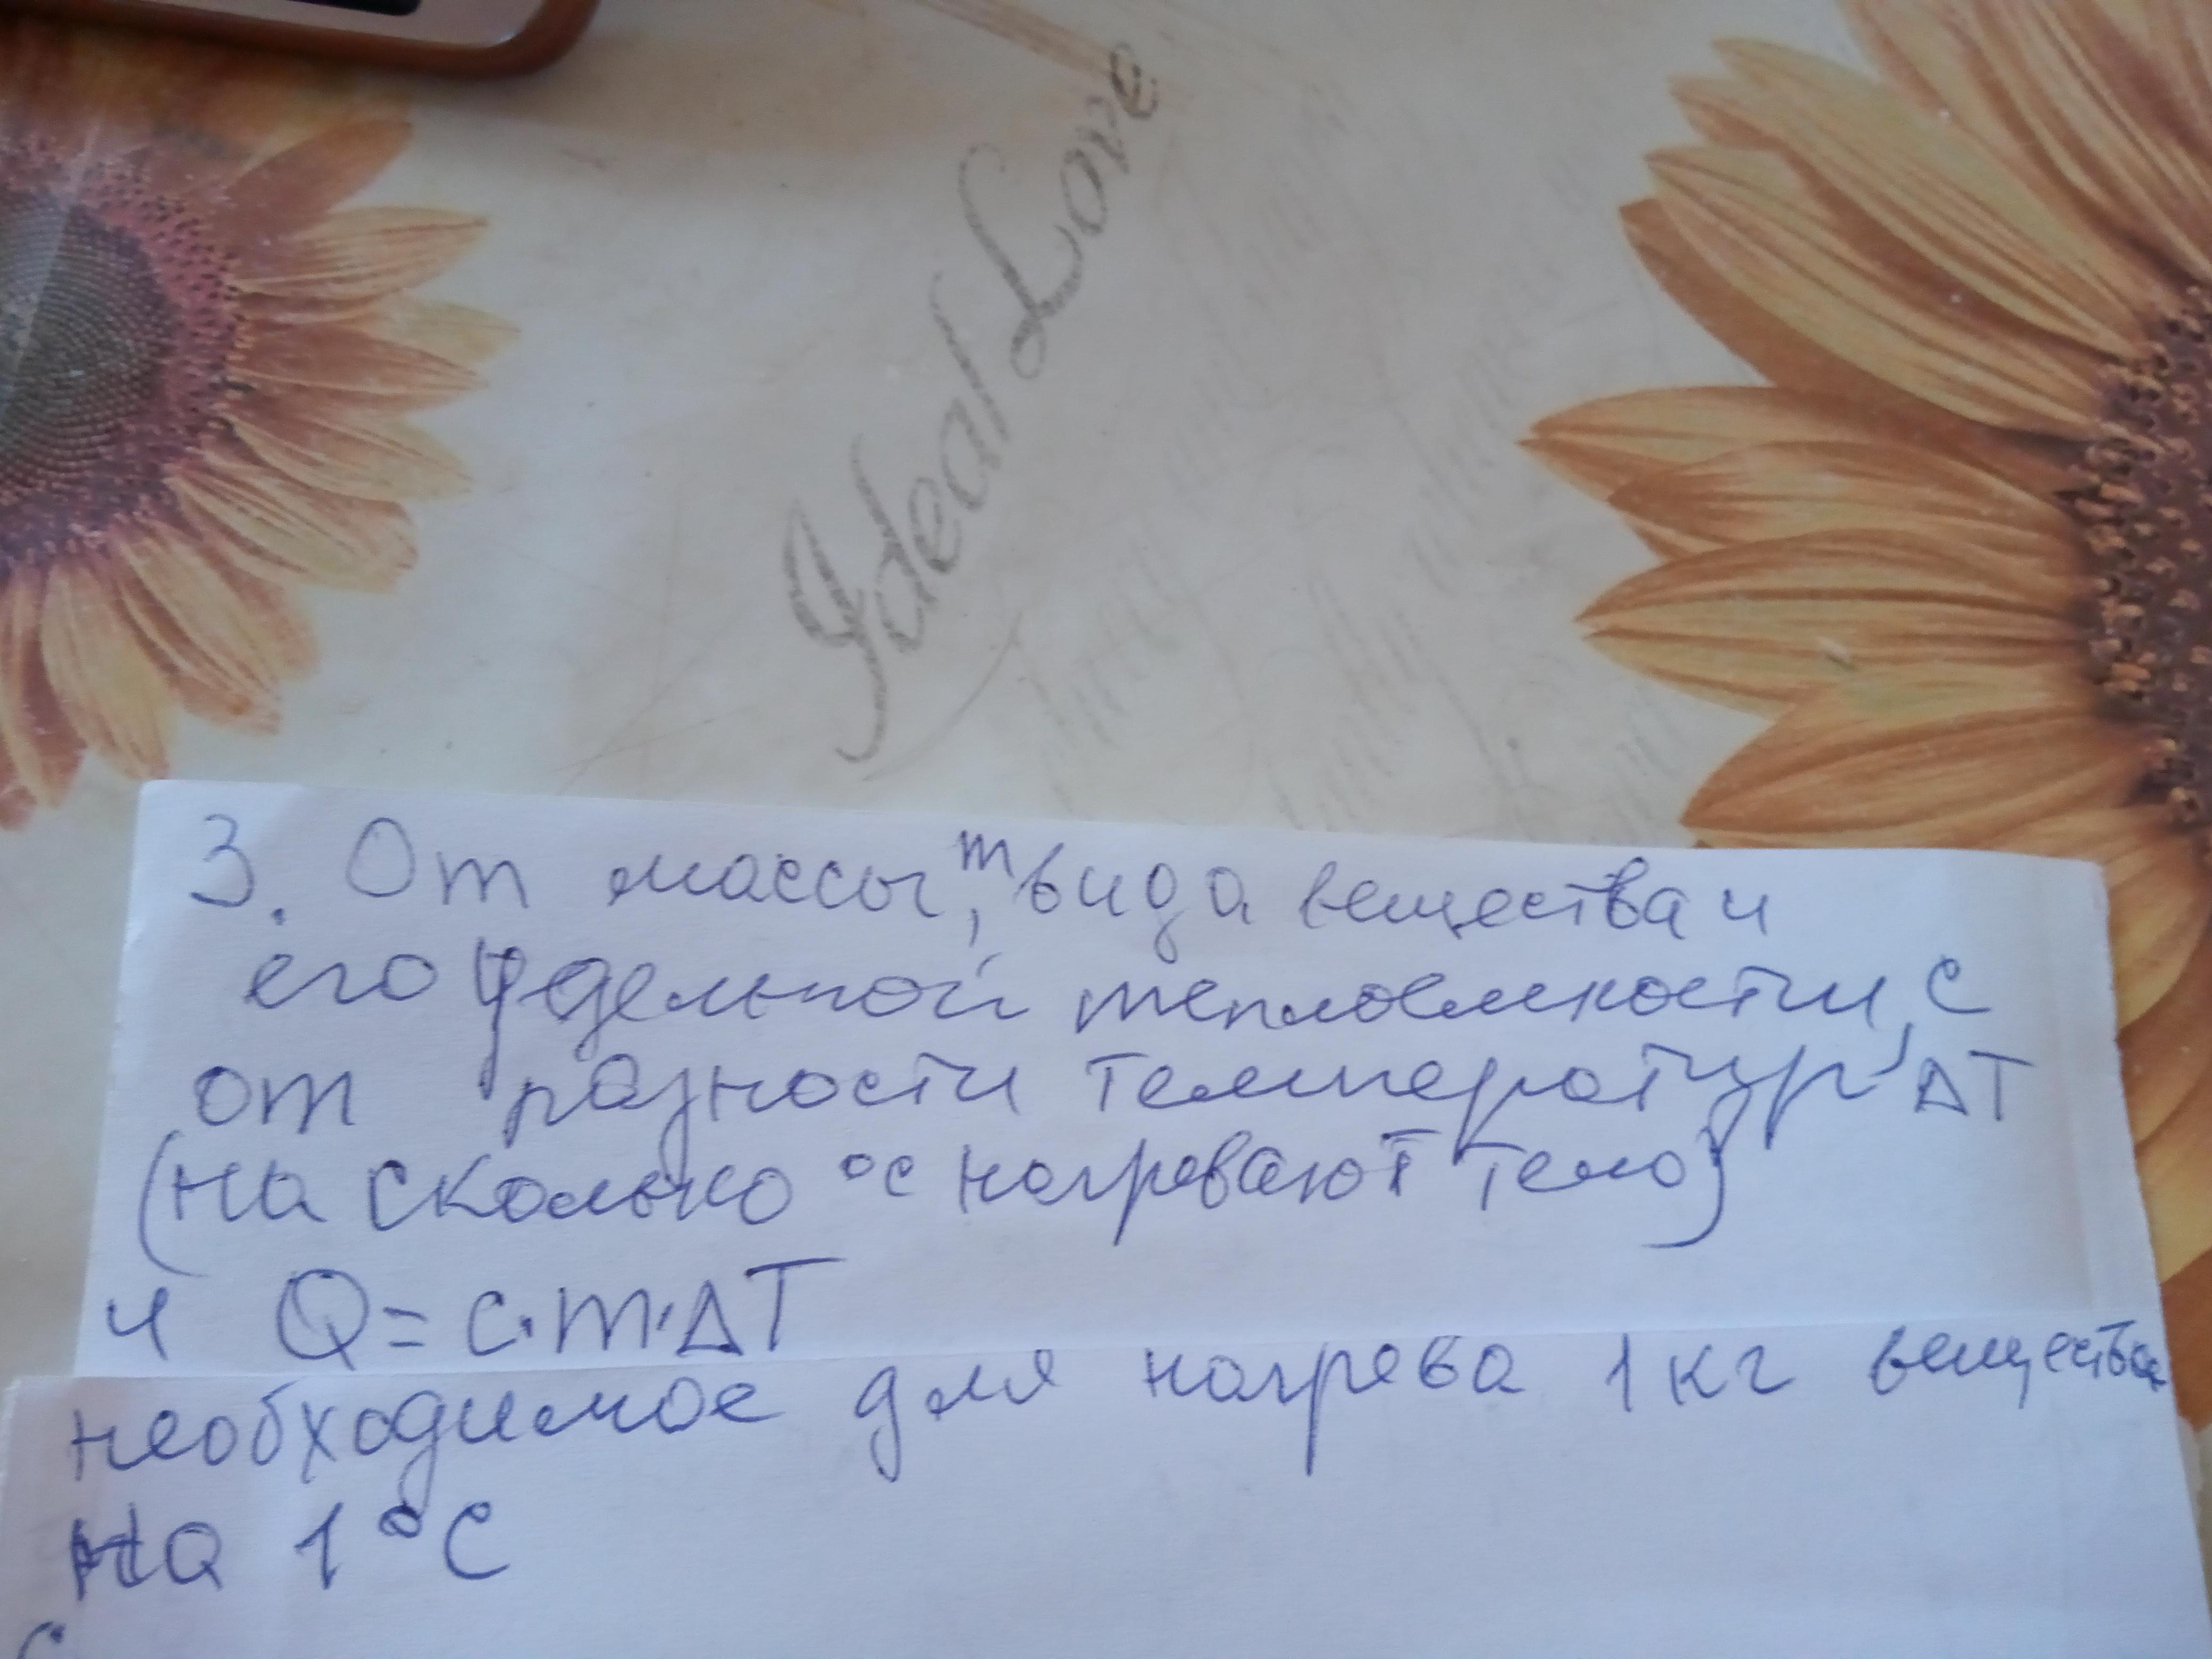 Ideal Love
3. От массы, m вида вещества и
его удельной теплоемкости, c
от разности температур, ΔT
(на сколько °C нагревают тело)
4 Q = c·m·ΔT
необходимое для нагрева 1 кг вещества
на 1 °C